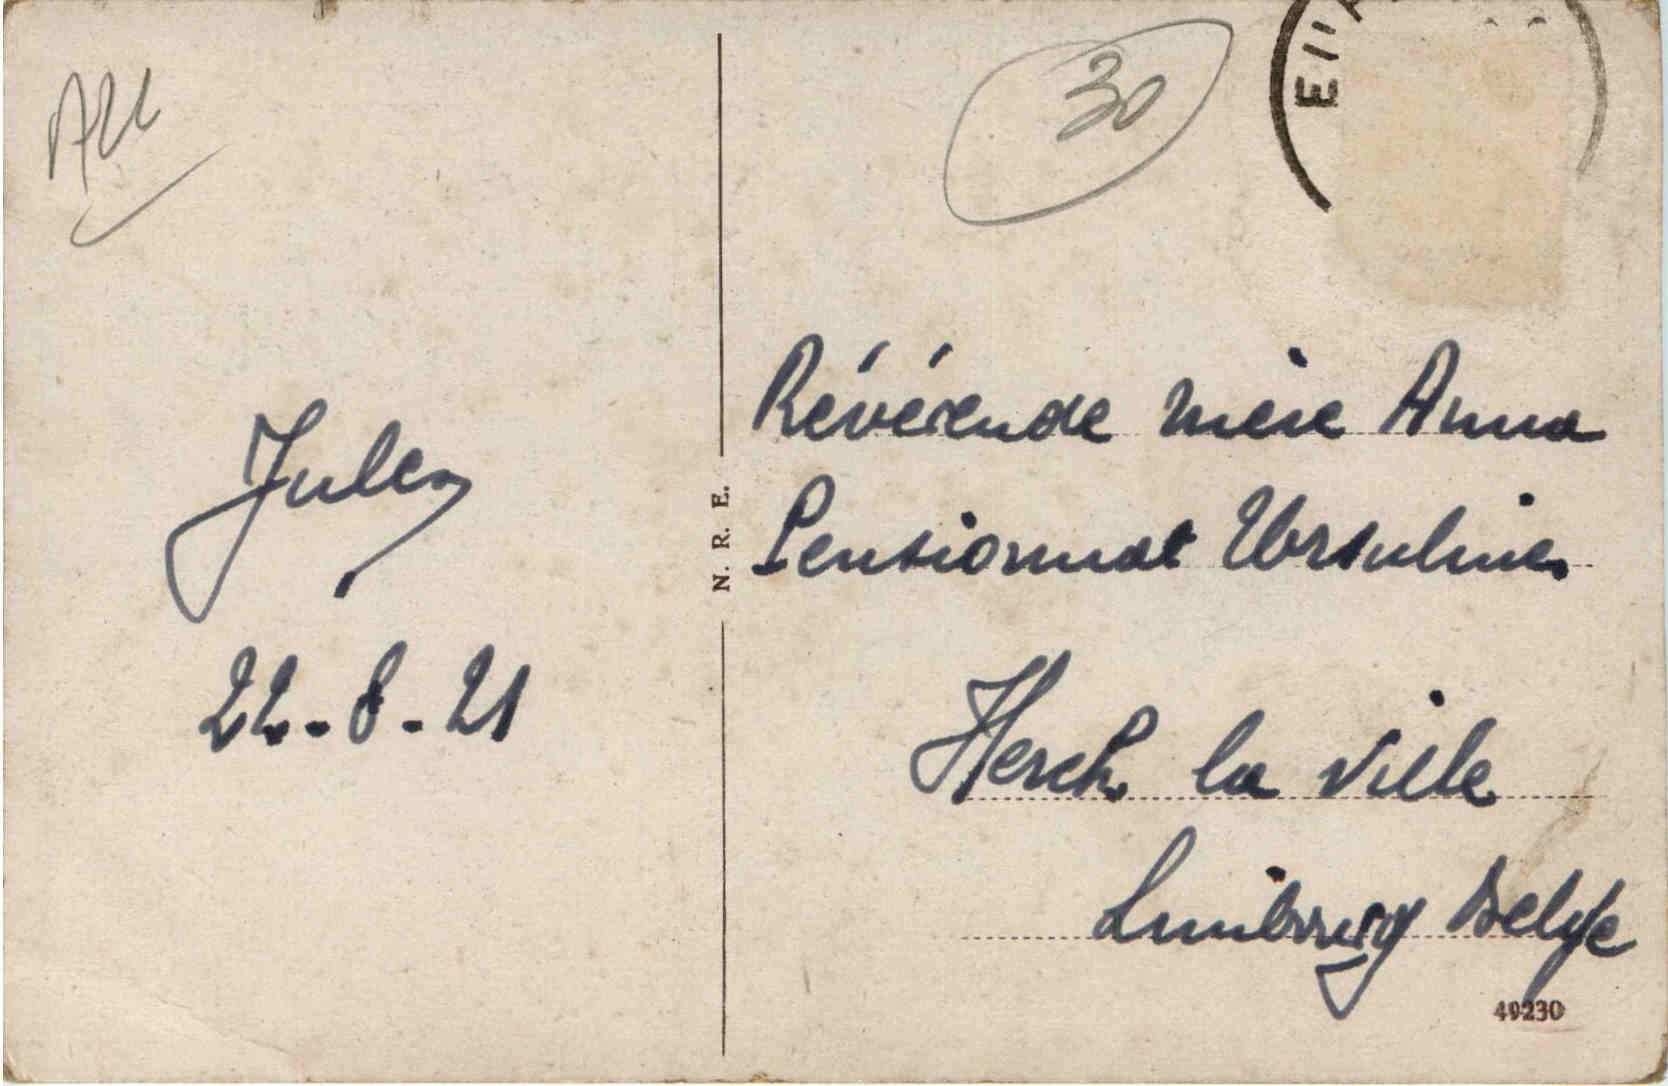 30
Jules
22-8-21
N. R. E.
Révérende mère Anna
Pensionnat Ursulines
Herck la ville
Limbourg Belge
49230